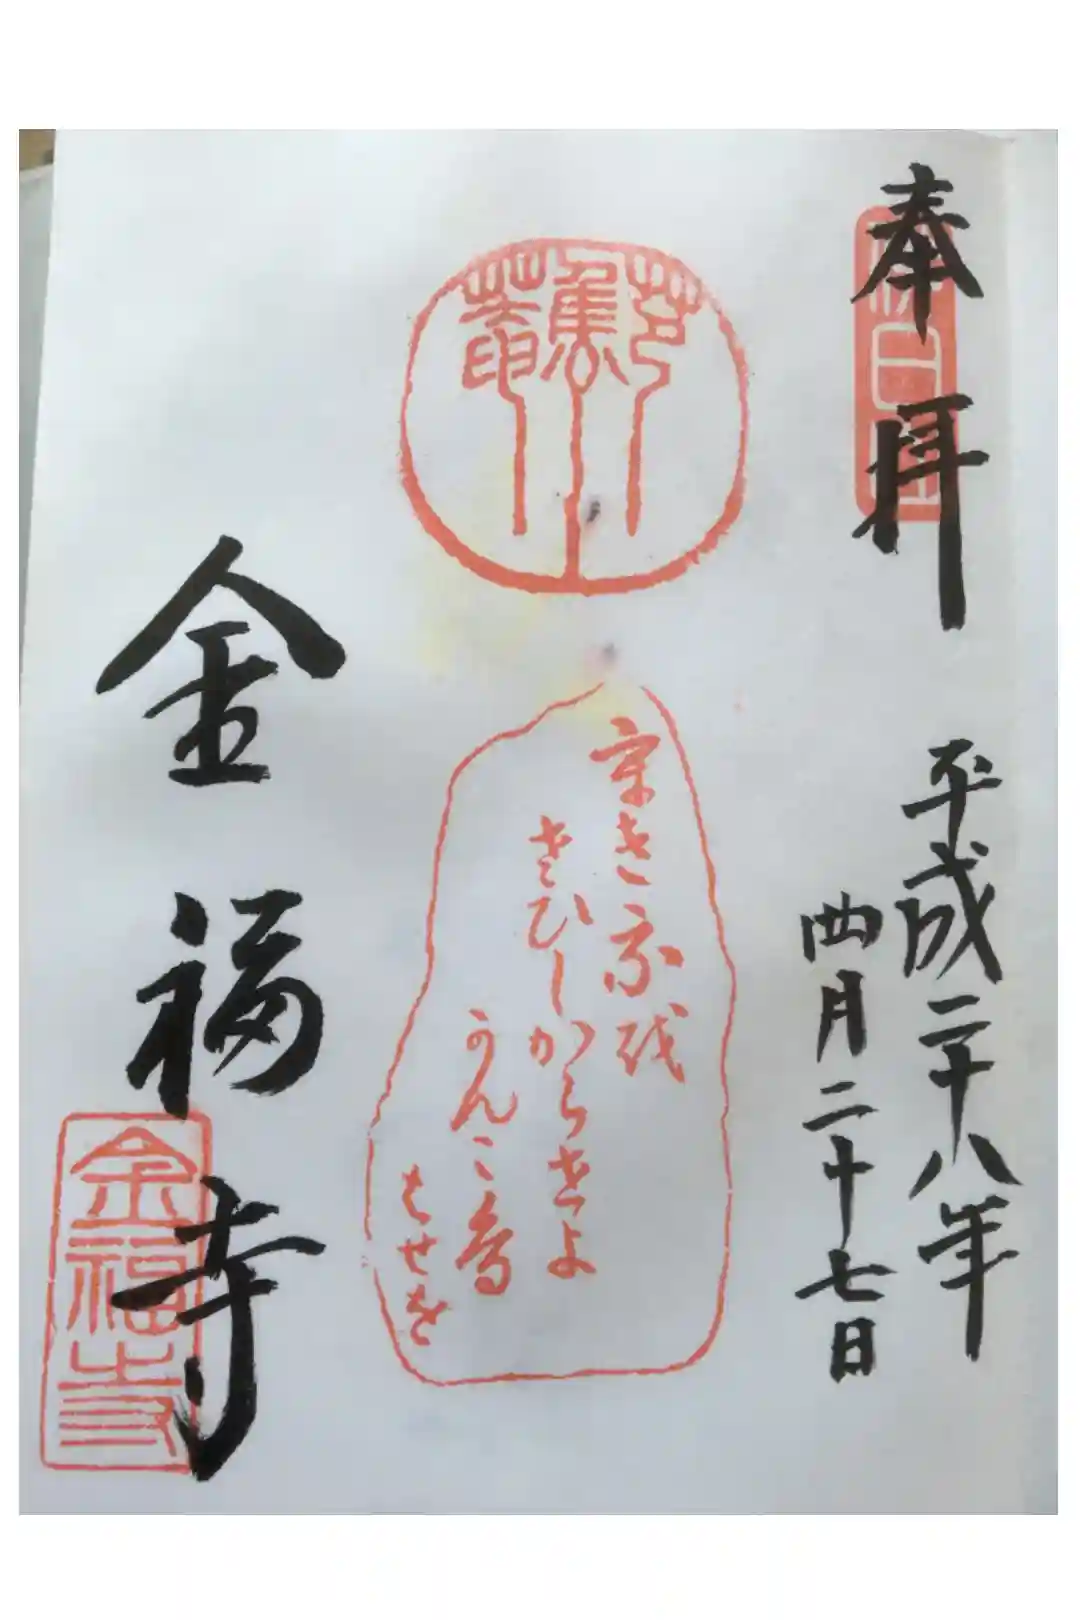 奉拝
佛日山
平成二十八年
四月二十七日
芭蕉菴
うき我を
さひしからせよ
かんこ鳥
はせを
金福寺
金福寺